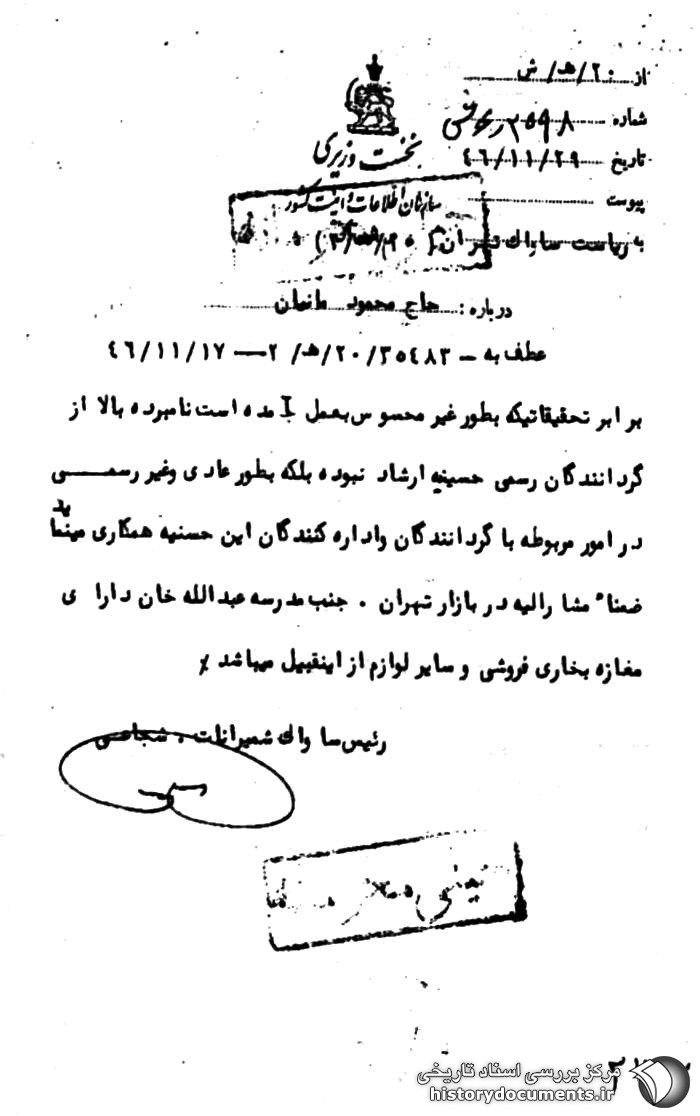 از ۲۰/هـ/ش
شماره ۲۵۹۸
تاریخ ۴۶/۱۱/۲۹
پیوست
نخست وزیری
سازمان اطلاعات و امنیت کشور
به ریاست ساواک تهران
درباره : حاج محمود مانیان
عطف به – ۳۵۴۸۳/۲۰/هـ/۲ – ۴۶/۱۱/۱۷
برابر تحقیقاتیکه بطور غیر محسوس بعمل آمده است نامبرده بالا از
گردانندگان رسمی حسینیه ارشاد نبوده بلکه بطور عادی وغیر رسمـــی
در امور مربوطه با گردانندگان واداره کنندگان این حسنیه همکاری مینماید
ضمناً مشارالیه در بازار تهران . جنب مدرسه عبدالله خان دارای
مغازه بخاری فروشی و سایر لوازم از اینقبیل میباشد ٪
رئیس ساواک شمیرانات . شجاعی
مرکز بررسی اسناد تاریخی
historydocuments.ir